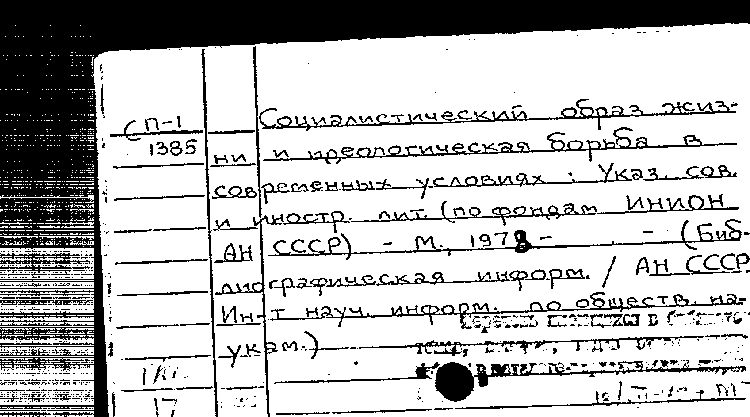 СП-1
1385
Социалистический образ жиз-
ни и идеологическая борьба в
современных условиях : Указ. сов.
и иностр. лит. (по фондам ИНИОН
АН СССР) - М., 1978 - - (Биб-
лиографическая информ. / АН СССР.
Ин-т науч. информ. по обществ. на-
укам.)
17